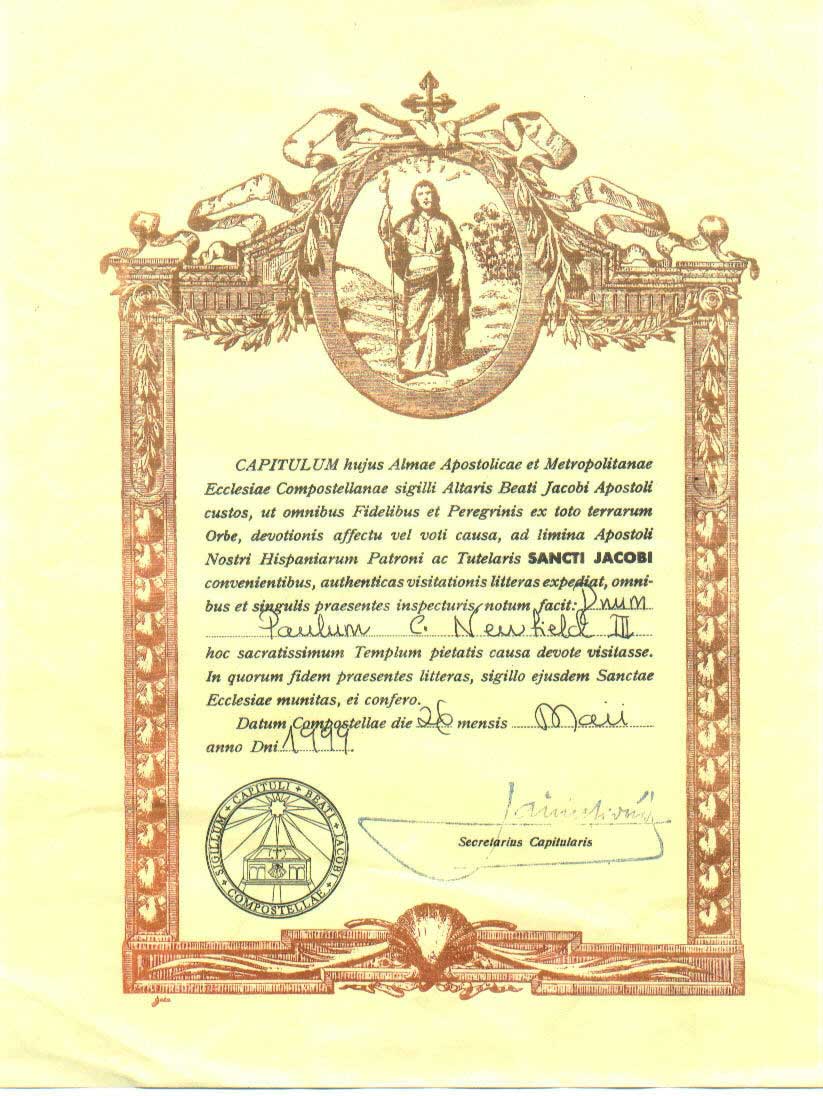 CAPITULUM hujus Almae Apostolicae et Metropolitanae
Ecclesiae Compostellanae sigilli Altaris Beati Jacobi Apostoli
custos, ut omnibus Fidelibus et Peregrinis ex toto terrarum
Orbe, devotionis affectu vel voti causa, ad limina Apostoli
Nostri Hispaniarum Patroni ac Tutelaris SANCTI JACOBI
convenientibus, authenticas visitationis litteras expediat, omni-
bus et singulis praesentes inspecturis, notum facit: Dnum
Paulum C. Newfield III
hoc sacratissimum Templum pietatis causa devote visitasse.
In quorum fidem praesentes litteras, sigillo ejusdem Sanctae
Ecclesiae munitas, ei confero.
Datum Compostellae die 26 mensis Maii
anno Dni 1999.
SIGILLUM + CAPITULI + BEATI + JACOBI + COMPOSTELLAE +
Secretarius Capitularis